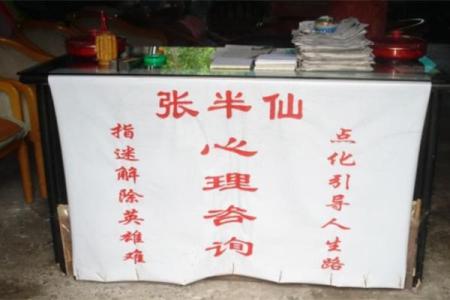 张半仙
心理咨询
点化引导人生路
指迷解除英雄难